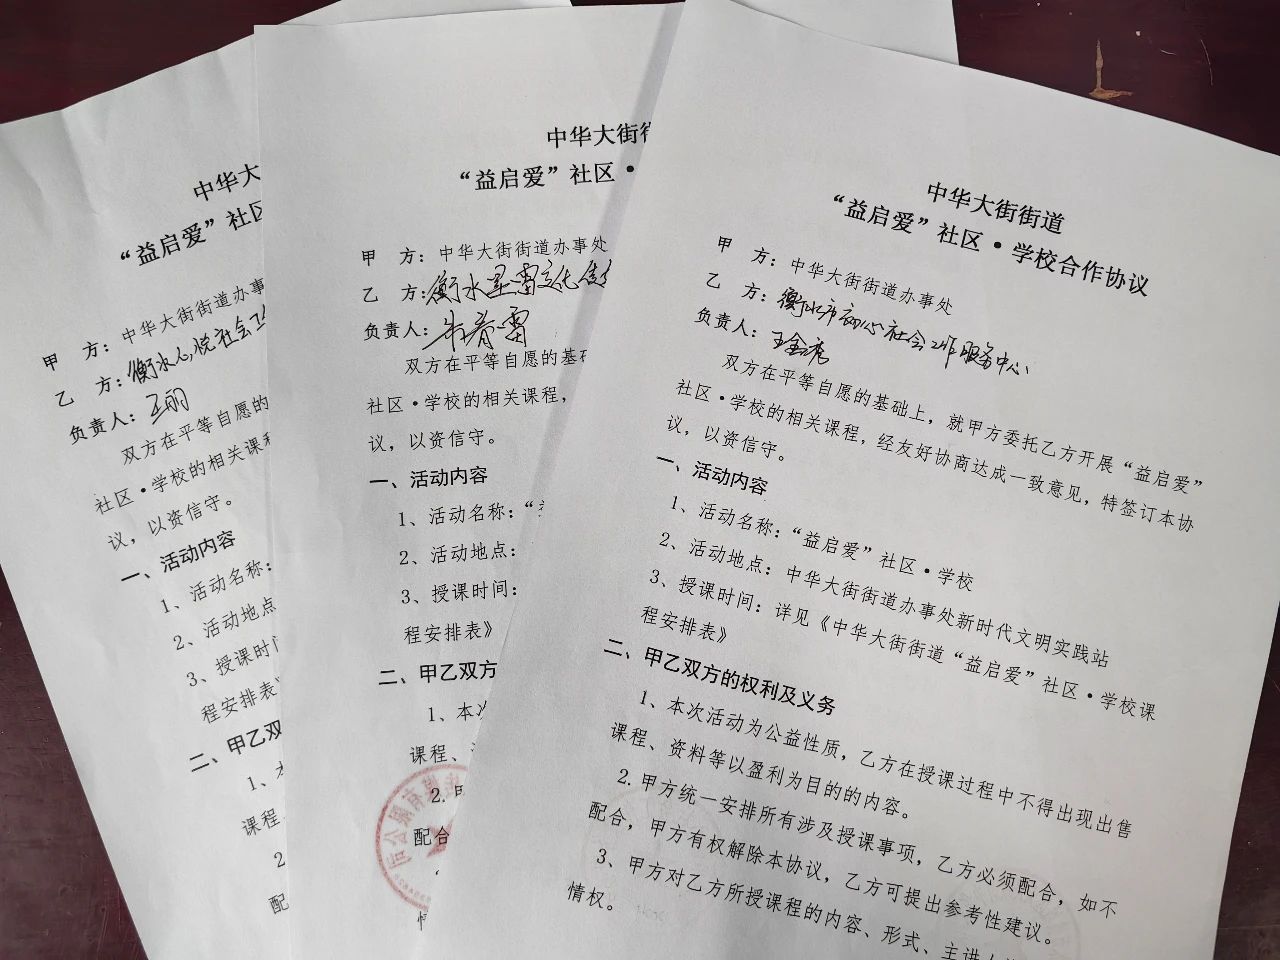 中华大
“益启爱”社区
甲 方：中华大街街道办事
乙 方：衡水人悦社会工
负责人：王丽
双方在平等自愿的
社区·学校的相关课程
议，以资信守。
一、活动内容
1、活动名称：
2、活动地点
3、授课时间
程安排表》
二、甲乙双
1、本
课程
2
配
中华大街街
“益启爱”社区·
甲 方：中华大街街道办事处
乙 方：衡水星雷文化传
负责人：朱春雷
双方在平等自愿的基础
社区·学校的相关课程，
议，以资信守。
一、活动内容
1、活动名称：“
2、活动地点：
3、授课时间：
程安排表》
二、甲乙双方
1、本次
课程、
2.甲
配合
情
中华大街街道
“益启爱”社区·学校合作协议
甲 方：中华大街街道办事处
乙 方：衡水市初心社会工作服务中心
负责人：王金亮
双方在平等自愿的基础上，就甲方委托乙方开展“益启爱”
社区·学校的相关课程，经友好协商达成一致意见，特签订本协
议，以资信守。
一、活动内容
1、活动名称：“益启爱”社区·学校
2、活动地点：中华大街街道办事处新时代文明实践站
3、授课时间：详见《中华大街街道“益启爱”社区·学校课
程安排表》
二、甲乙双方的权利及义务
1、本次活动为公益性质，乙方在授课过程中不得出现出售
课程、资料等以盈利为目的的内容。
2.甲方统一安排所有涉及授课事项，乙方必须配合，如不
配合，甲方有权解除本协议，乙方可提出参考性建议。
3、甲方对乙方所授课程的内容、形式、主讲人
情权。